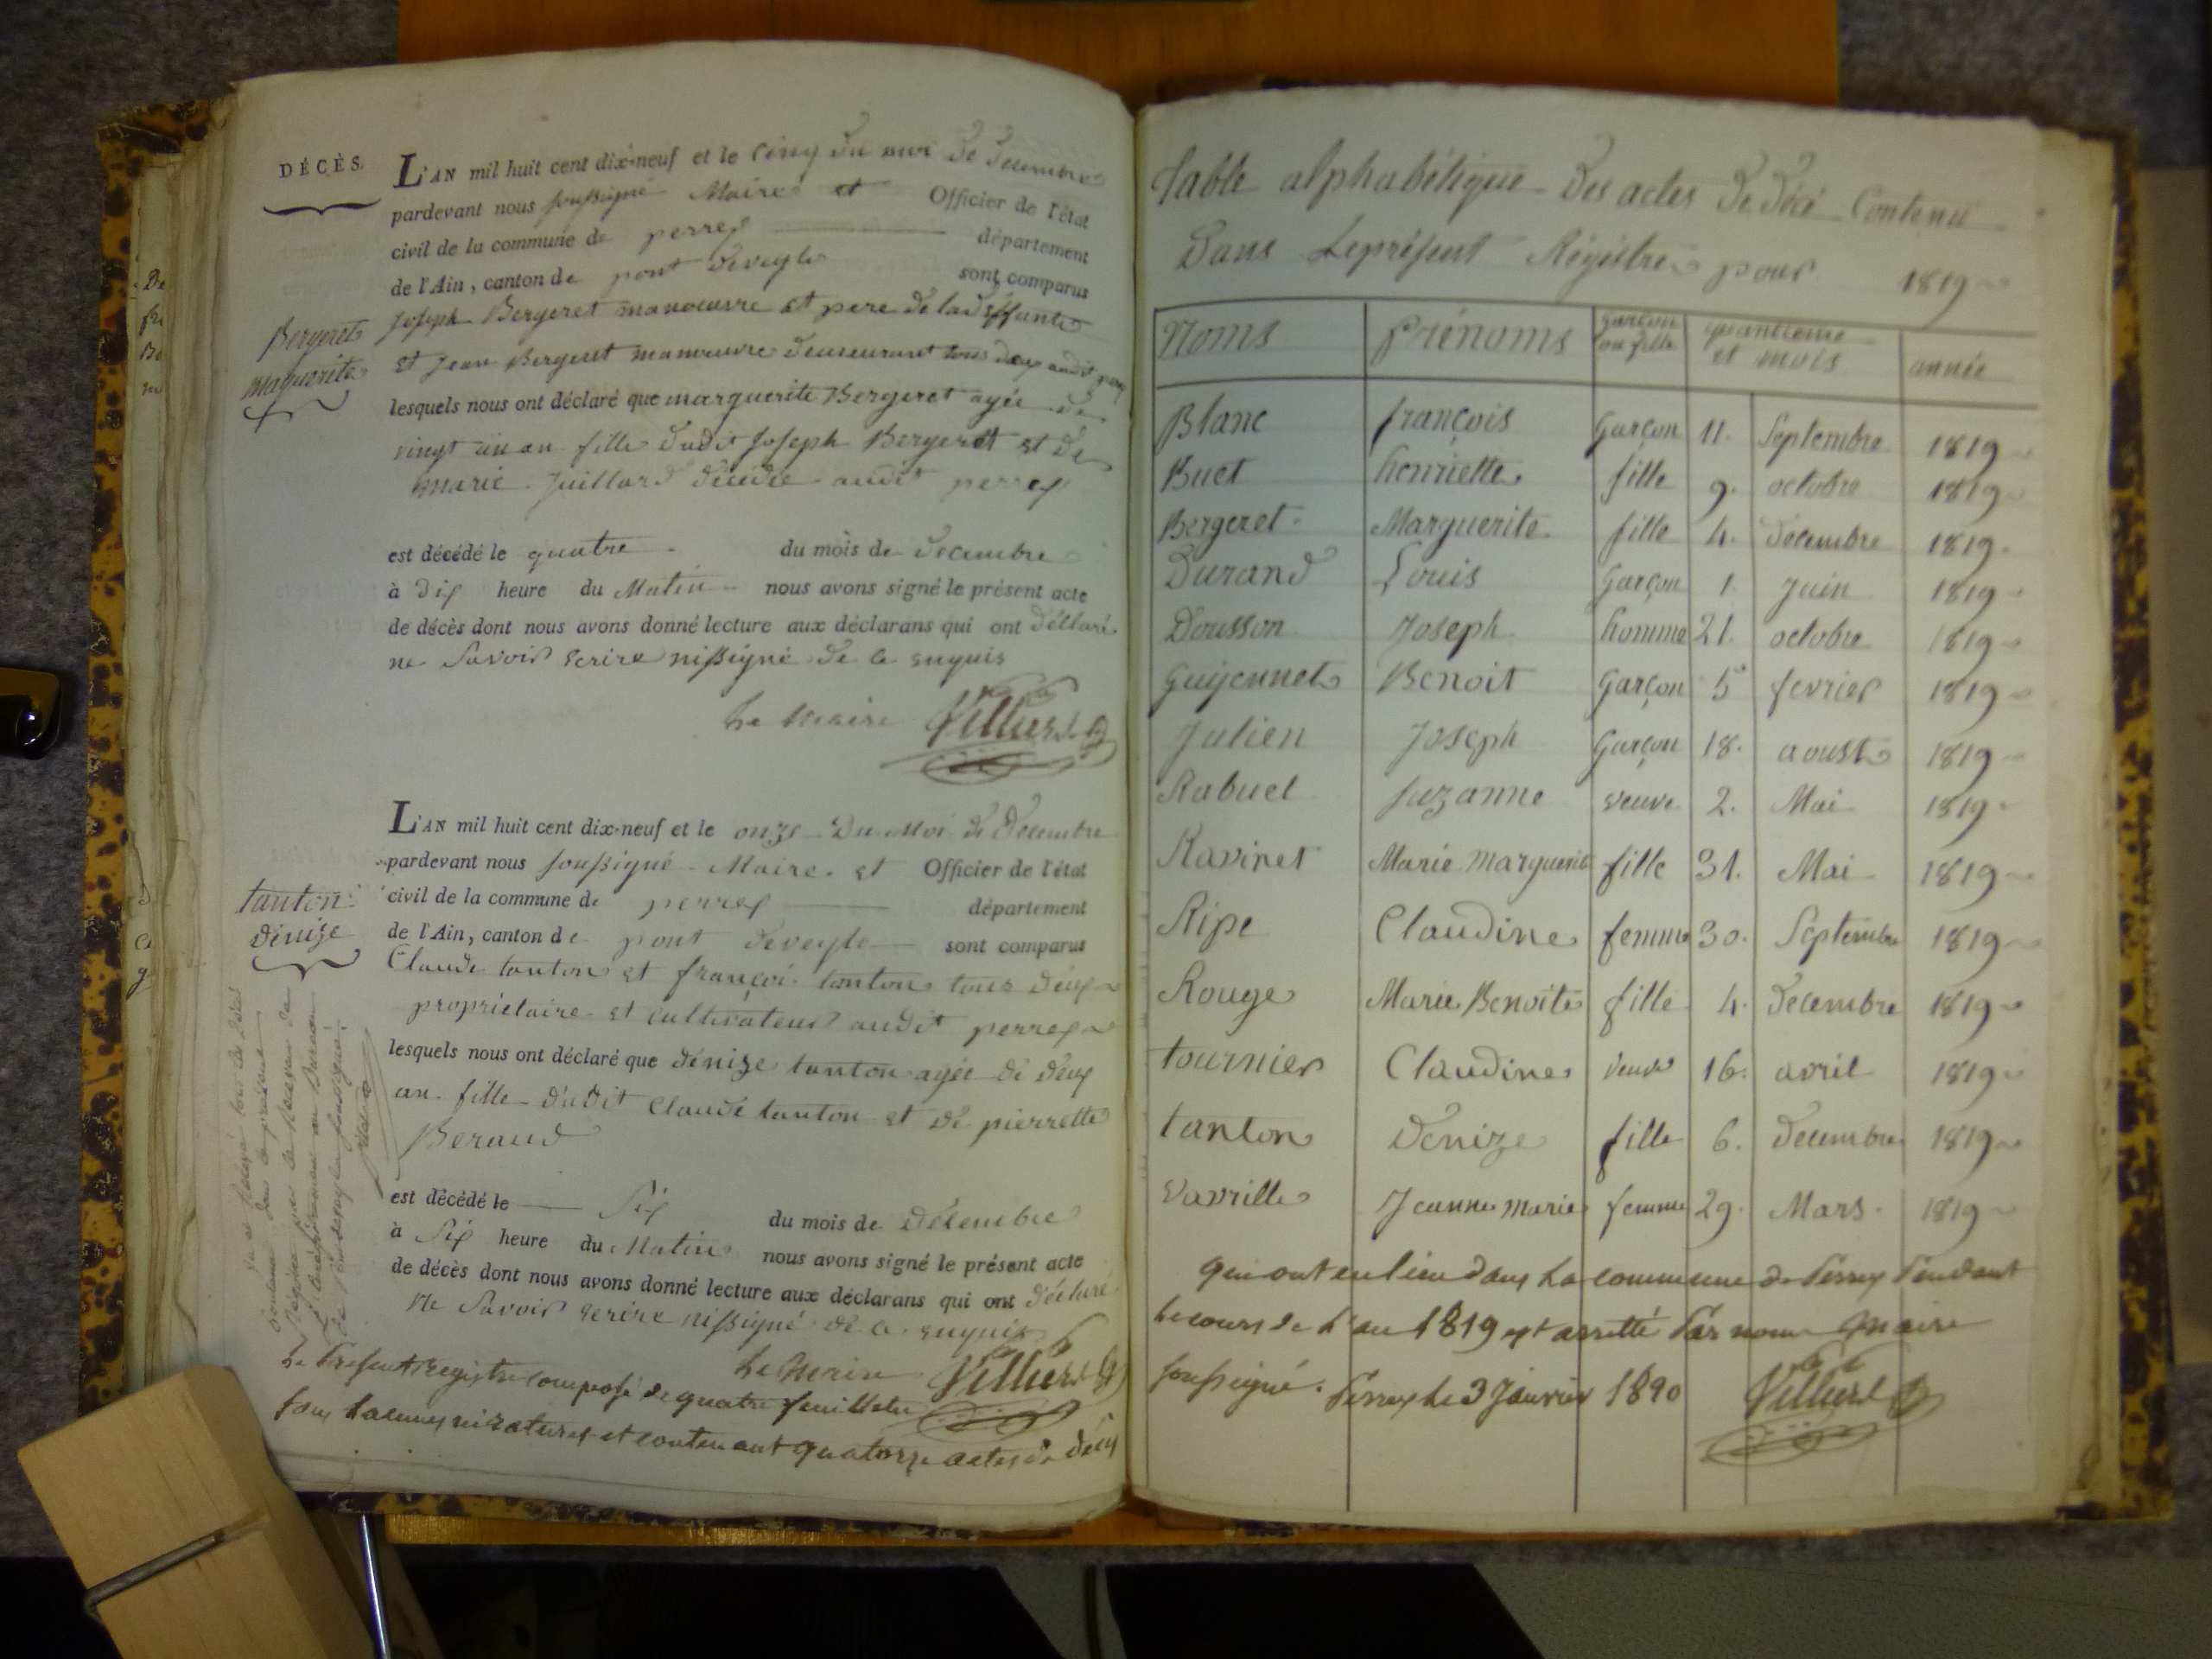 DÉCÈS.
L'AN mil huit cent dix-neuf et le cinq du moi de decembre
pardevant nous soussigné Maire et Officier de l'état
civil de la commune de perrex département
de l'Ain, canton de pont deveyle sont comparus
Joseph Bergeret manoeuvre et pere de la deffunte
et Jean Bergeret manoeuvre demeurant tous deux audit perrex
Bergeret
marguerite
lesquels nous ont déclaré que marguerite Bergeret agée de
vingt un an fille dudit Joseph Bergeret et de
marie Juillard décédée audit perrex
est décédé le quatre du mois de decembre
à dix heure du Matin nous avons signé le présent acte
de décès dont nous avons donné lecture aux déclarans qui ont déclaré
ne savoir écrire ni signé de ce enquis
Le Maire Villiers
L'AN mil huit cent dix-neuf et le onze Du Moi de Decembre
pardevant nous soussigné Maire et Officier de l'état
civil de la commune de perrex département
de l'Ain, canton de pont deveyle sont comparus
tanton
dénize
Claude tanton et françoi tanton tous deux
propriétaire et cultivateur audit perrex
lesquels nous ont déclaré que dénize tanton agée de deux
an fille dudit Claude tanton et de pierrette
Beraud
est décédé le Six du mois de Décembre
à Six heure du Matin nous avons signé le présent acte
de décès dont nous avons donné lecture aux déclarans qui ont déclaré
ne savoir écrire ni signé de ce enquis
Le Maire Villiers
Le Present Registre composé de quatre feuillets
sans lacunes ni ratures et contenant quatorze actes de décès
table alphabétique des actes de décè Contenu
Dans Leprésent Régistre pour 1819
Noms Prénoms garçon ou fille quantieme et mois année
Blanc françois Garçon 11. Septembre 1819
Buet henriette fille 9. octobre 1819
Bergeret Marguerite fille 4. decembre 1819
Durand Louis Garçon 1 Juin 1819
Dousson Joseph homme 21. octobre 1819
Guijennet Benoit Garçon 5 fevrier 1819
Julien Joseph Garçon 18. aoust 1819
Rabuel Suzanne veuve 2. Mai 1819
Raviret Marie Marguerite fille 31. Mai 1819
Ripe Claudine femme 30. Septembre 1819
Rouge Marie Benoite fille 4. decembre 1819
tournier Claudine veuve 16. avril 1819
tanton Denize fille 6. decembre 1819
Vavrille Jeanne Marie femme 29. Mars. 1819
qui ont eu lieu dans la commune de Perrex Pendant
le cours de l'an 1819 est arretté Par nous Maire
soussigné. Perrex le 3 Janvier 1820 Villiers